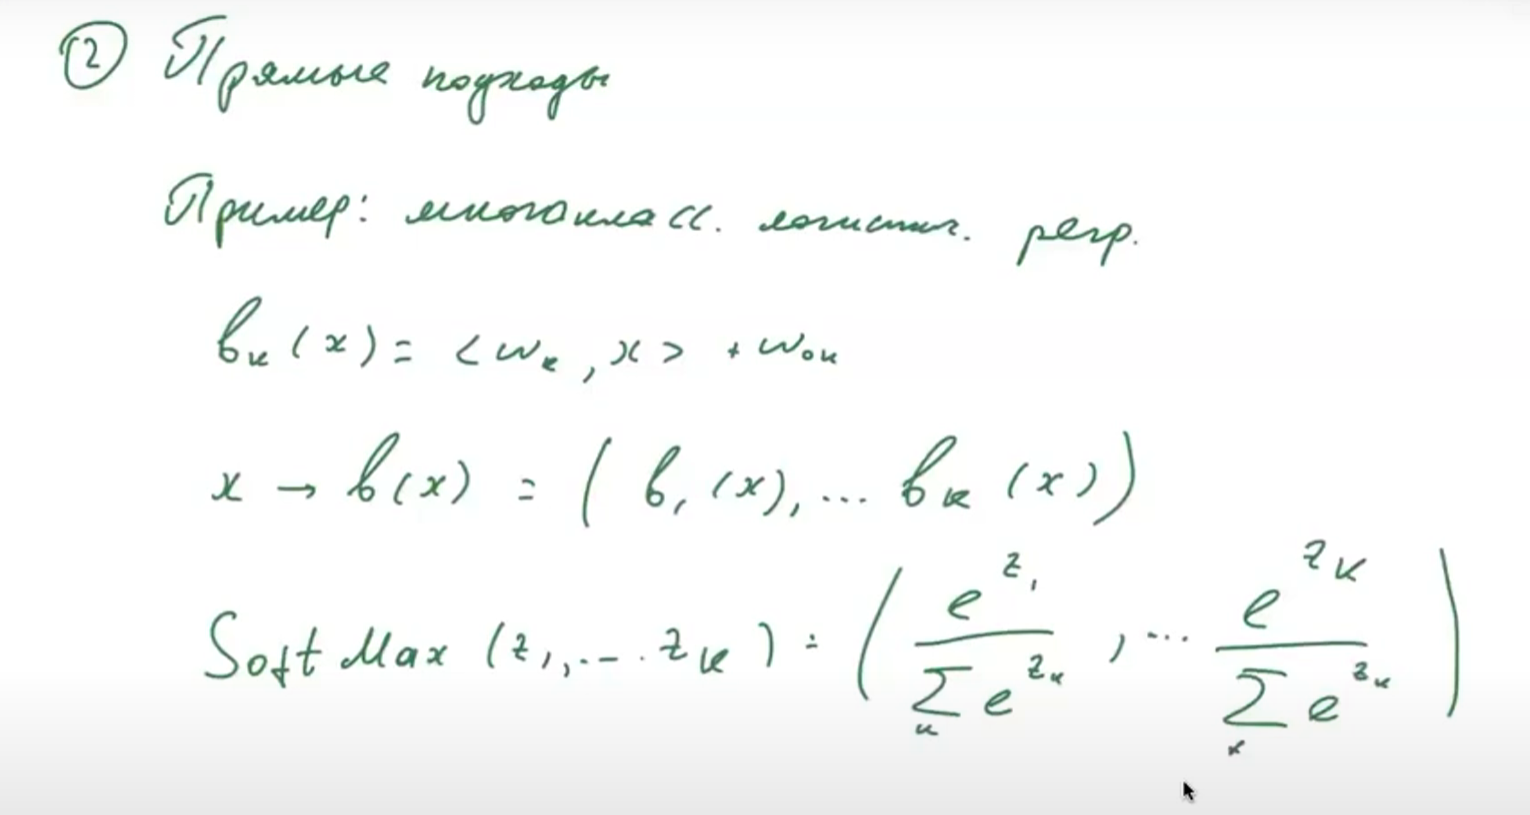 ② Прямые подходы
Пример: многокласс. логистич. регр.
b_k (x) = <w_k, x> + w_0k
x → b(x) = ( b_1 (x), ... b_K (x) )
SoftMax (z_1, ... z_K) = ( e^{z_1} / Σ_k e^{z_k} , ... e^{z_K} / Σ_k e^{z_k} )